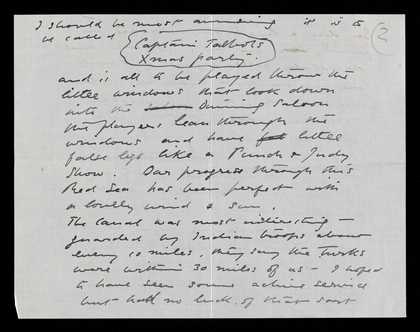 I should be most amusing it is to
be called Captain Talbots
Xmas party.
2
and is all to be played throu the
little windows that look down
into the Dining Saloon
the players lean through the
windows and have little
false legs like a Punch & Judy
Show. Our progress through this
Red Sea has been perfect with
a lovely wind & sun.
The Canal was most interesting –
guarded by Indian troops about
every 10 miles, they say the Turks
were within 30 miles of us – I hoped
to have seen some active service
but had no luck of that sort